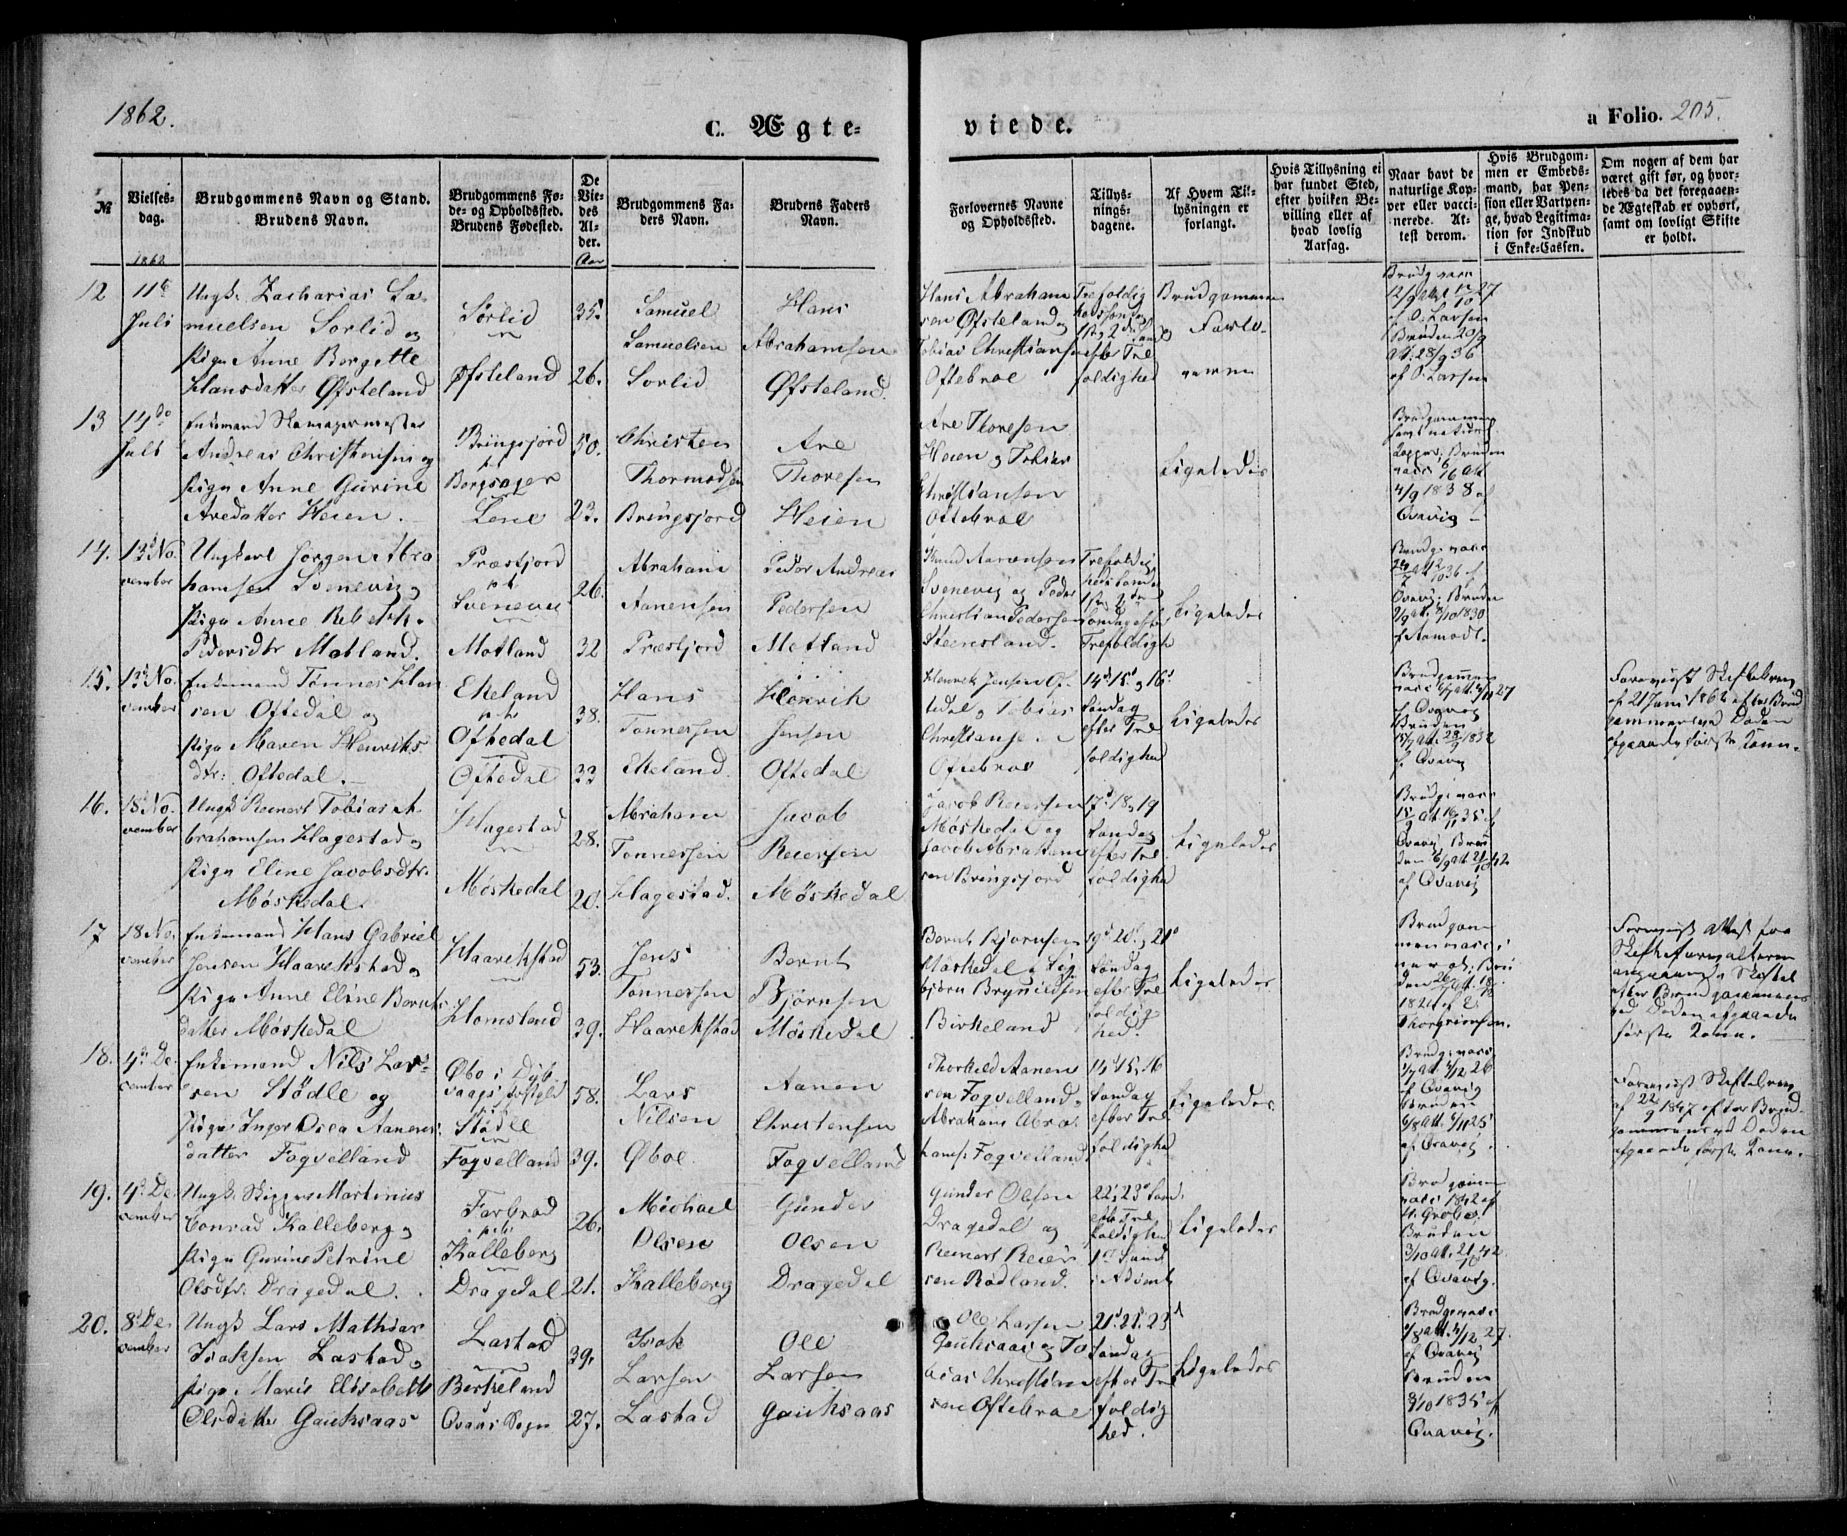 1862.
C. Ægte-
viede.
a Folio. 205.
№
Vielses-
dag.
Brudgommens Navn og Stand.
Brudens Navn.
Brudgommens Fø-
de- og Opholdssted.
Brudens Fødested.
De
Vie-
des
Al-
der.
Brudgommens Fa-
ders Navn.
Brudens Faders
Navn.
Forlovernes Navne
og Opholdssted.
Tillys-
nings-
dagene.
Af Hvem Til-
lysningen er
forlangt.
Hvis Tillysning ei
har fundet Sted,
efter hvilken Be-
villing eller af
hvad lovlig
Aarsag.
Naar havt de
naturlige Kop-
per eller vacci-
nerede. At-
test derom.
Hvis Brudgom-
men er Embeds-
mand, har Pen-
sion eller Vartpen-
ge, hvad Legitima-
tion for Indskud
i Enke-Cassen.
Om nogen af dem har
været gift før, og hvor-
ledes da det foregaaen-
de Ægteskab er ophørt,
samt om lovligt Skifte
er holdt.
1862
Aar
12
11te
Juli
Ungk. Zacharias Sa-
muelsen Sorlid og
Pige Anne Borgette
Hansdatter Øfsteland
Sørlid
Øfsteland
35.
26.
Samuel
Samuelsen
Sorlid
Hans
Abrahamsen
Øfsteland.
Hans Abraham
sen Øfsteland og
Tobias Christiansen
Oftebroe
Trefoldig
1ste og 2den
efter Tre
foldighed
Brudgommen
og Forlo-
verne
af O. Larsen
Bruden 20/9
att. 28/9 36
af O. Larsen
13
Juli
Enkemand
Andreas Christensen og
Pige Anne Gurine
Aredatter Heien.
Bringsjord
Borgsager
Lene
50.
23.
Christen
Thormodsen
Bringsjord
Are
Thoresen
Heien
Are Thoresen
Heien og Tobias
Christiansen
Oftebroe
Ligeledes
Brudgommen
Kopper, Bruden
vacc. 1/6 att
4/9 1838 af
Qvavig
14.
13de No
vember
Ungkarl Jørgen Abra
hamsen Svenevig og
Pige Anne Rebekk.
Pedersdtr Motland.
Præstjord
Svenevig
Motland
26.
32
Abraham
Aanensen
Præstjord
Peder Andreas
Pedersen
Motland
Knud Aanensen
Svenevig og Peder
Christian Pedersen
Steensland.
Trefoldig
heds Søndag
1ste, 2den
Søndag efter
Trefoldigh
Ligeledes
Brudg. vacc
Qvavig. Bruden
af Aamodt.
15.
13de No
vember
Enkemand Tønnes Han
sen Oftedal og
Pige Maren Henriks
dtr: Oftedal.
Ekeland
Oftedal
Oftedal
38.
33
Hans
Tønnessen
Ekeland.
Henrik
Jensen
Oftedal
Henrik Jensen Of-
tedal og Tobias
Christianse..
Oftebroe
14de 15de og 16de
Søndag
efter Tre
foldighed
Ligeledes
Brudgommen
af Qvavig
Bruden
af Qvavig
Forevist Skiftebrev
af 21 Juni 1862 efter Brud
gommens ved Døden
afgaaede første Kone.
16.
18de No
vember
Ungk Reinert Tobias A-
brahamsen Hagestad og
Pige Eline Jacobsdtr.
Møskedal.
Hagestad
Møskedal
28.
20.
Abraham
Tønnessen
Hagestad.
Jacob
Reiersen
Møskedal
Jacob Reiersen
Møskedal og
Jacob Abraham
sen Bringsjord
17de 18 og 19
Søndag
efter Tre
foldighed
Ligeledes
Brudg. vacc
Qvavig. Bru
den
af Qvavig
17
18 No
vember
Enkemand Hans Gabriel
Jensen Haarikstad og
Pige Anne Eline Bernts
datter Møskedal
Haarikstad
Homsland
53.
39.
Jens
Tønnessen
Haarikstad
Bernt
Bjørnsen
Møskedal
Bernt Bjørnsen
Møskedal og Sig
bjørn Brynildsen
Birkeland
19de 20de og 21de
Søndag
efter Tre
foldig
hed.
Ligeledes
Brudgom
men vacc.
den
Thorbjørnsen.
Forevist Attest fra
Skifteforvalteren
angaaende Skiftet
efter Brudgommens
ved Døden afgaaede
første Kone.
18.
4de De-
cember
Enkemand Nils Lar-
sen Stødle og
Pige Inger Osea Aanens-
datter Fogvelland
Øbø i Dyb-
vaags Præstgjeld
Stødle
Fogvelland
58.
39.
Lars
Nilsen
Øboe
Aanen
Christensen
Fogvelland
Thorkild Aanen
sen Fogvelland
Abraham Abra-
hams. Fogvelland
14 15 og 16
Søndag
efter Tre
foldighed
Ligeledes
Brudg. vacc.
af Qvavig
Bruden
af Qvavig
Forevist Skiftebrev
af 22/9 1847 efter Brud-
gommens ved Døden
afgaaede første Kone.
19.
4de De-
cember
Ungk. Skipper Martinius
Conrad Kalleberg og
Pige Gurine Petrine
Olsdtr. Dragedal.
Farbrod
Kalleberg
Dragedal
26.
21.
Michael
Olsen
Kalleberg
Gunder
Olsen
Dragedal
Gunder Olsen
Dragedal og
Reinert Reier
sen Rødland.
22de 23de Sønd.
efter Tre
foldighed
1ste Sønd
i Advent
Ligeledes
Brudgommen
vacc 1842 af
Bruden
af Qvavig.
20.
8de De-
cember
Ungk Lars Mathias
Isaksen Lastad og
Pige Marie Elisabeth
Olsdatter Gauksaas
Lastad
Birkeland
Qvaas Sogn
39.
27.
Isak
Larsen
Lastad
Ole
Larsen
Gauksaas
Ole Larsen
Gauksaas og To
bias Christian
sen Oftebroe
Søndag
efter Tre
foldig
hed.
Ligeledes
Brudg. vacc
af Qvavig
Bruden
3/10 1835 af
Qvavig.